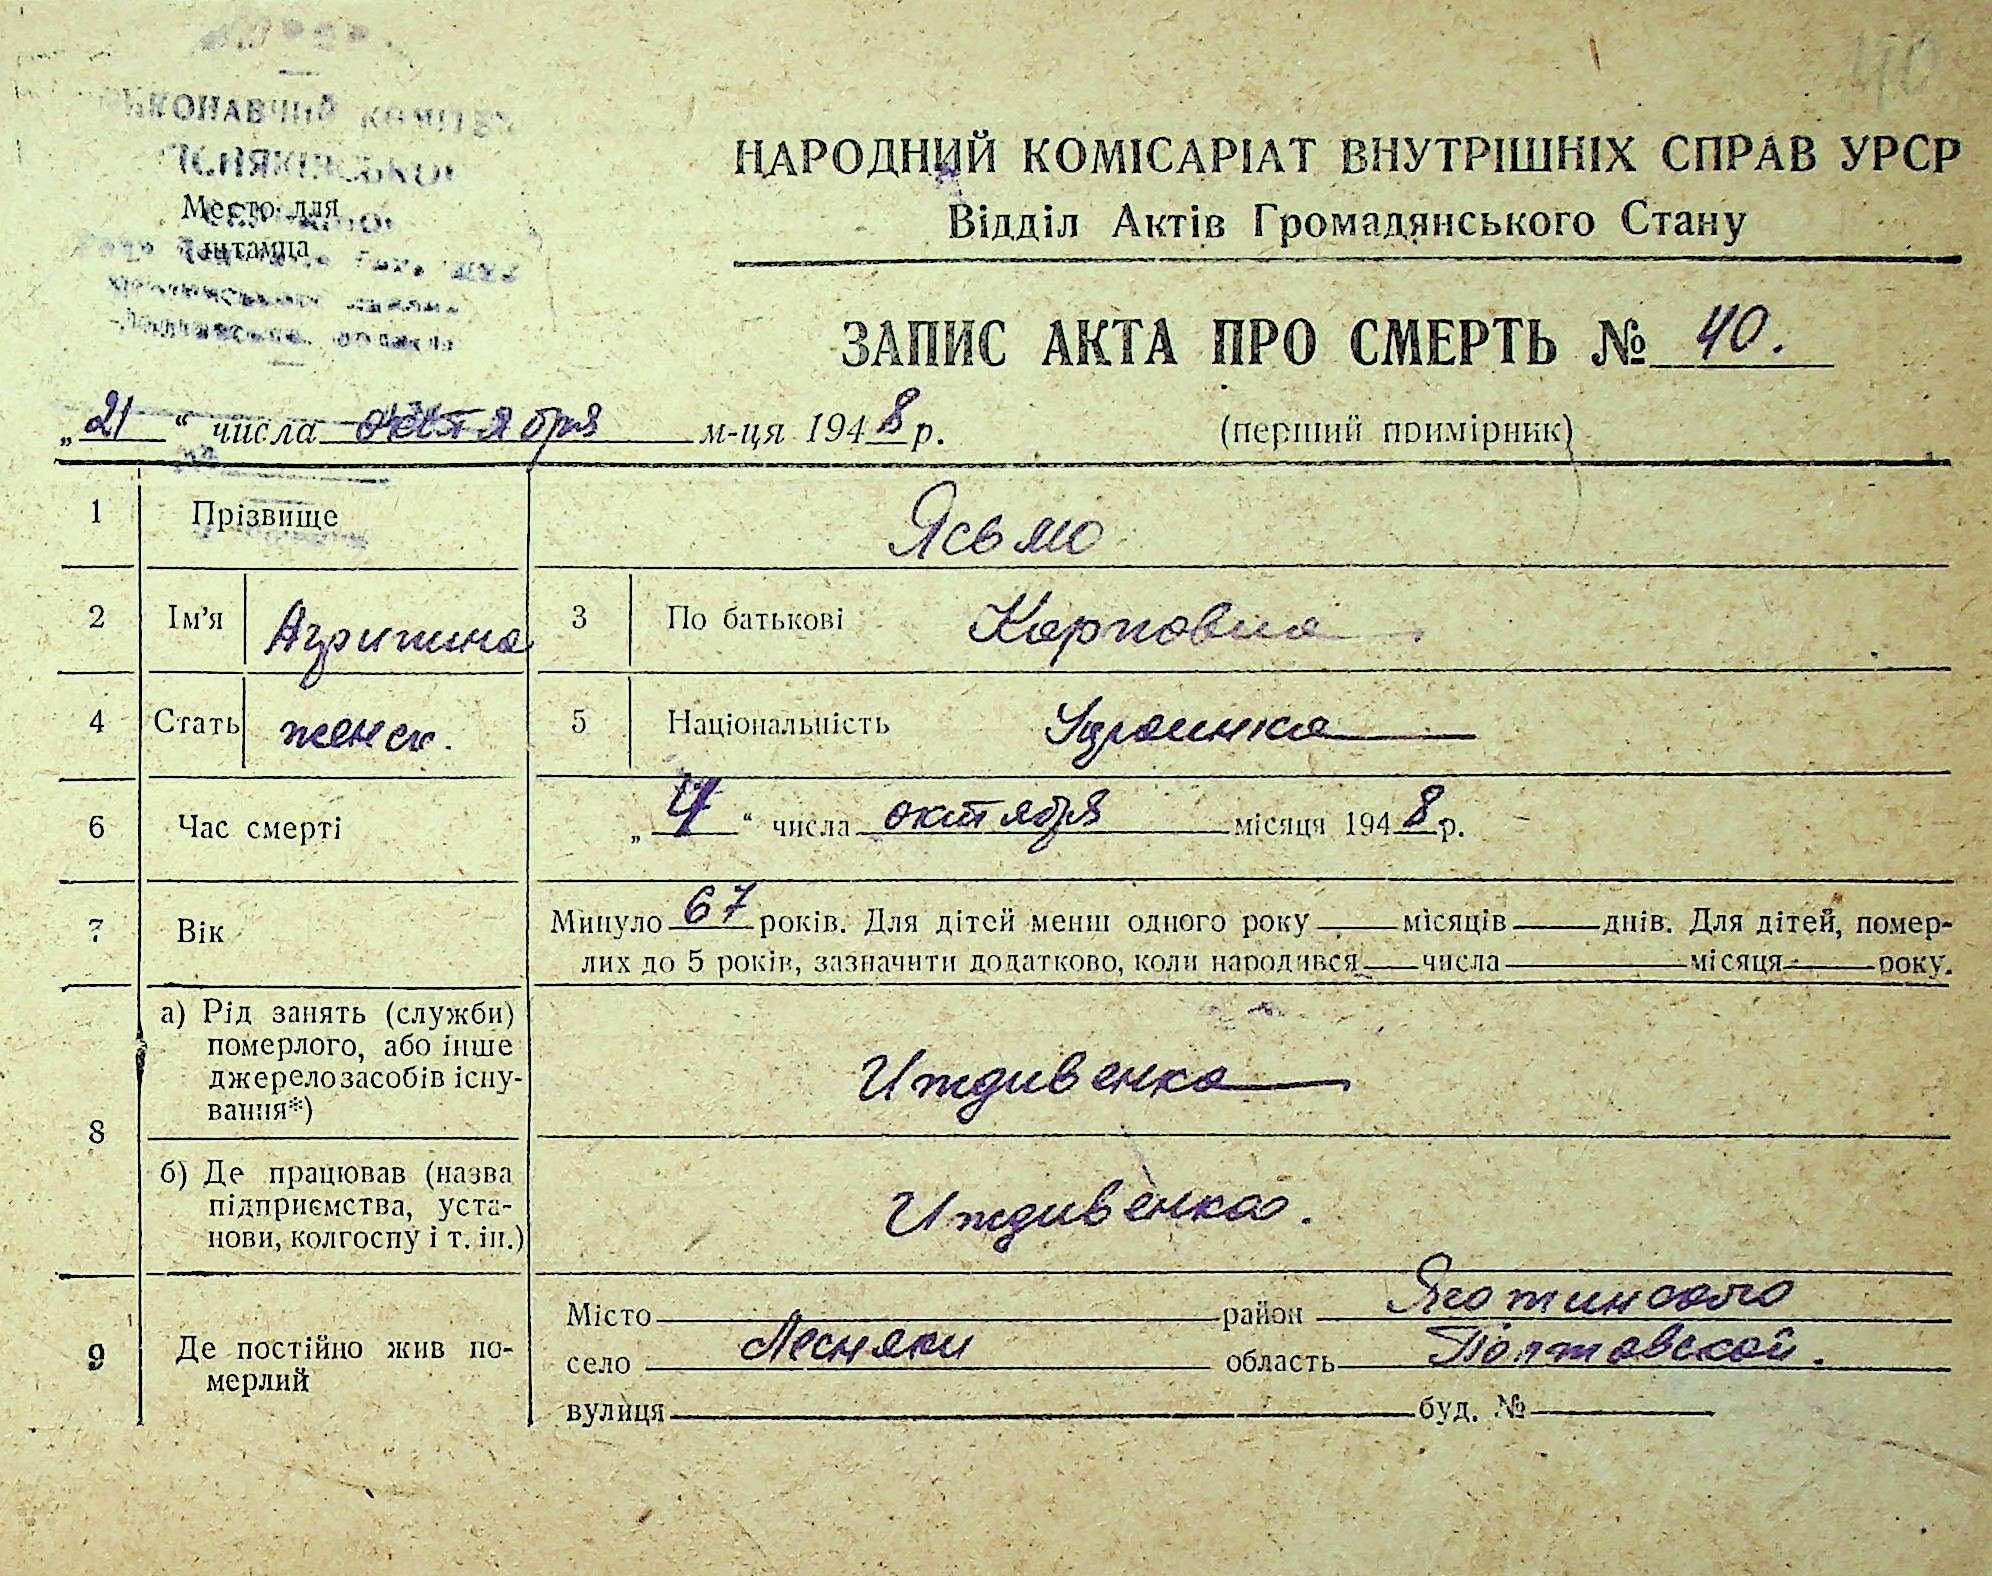 40
ВИКОНАВЧИЙ КОМІТЕТ
Место для
штампа
НАРОДНИЙ КОМІСАРІАТ ВНУТРІШНІХ СПРАВ УРСР
Відділ Актів Громадянського Стану
ЗАПИС АКТА ПРО СМЕРТЬ № 40.
„21“ числа октября м-ця 1948 р. (перший примірник)
1 Прізвище Ясьмо
2 Ім'я Агрипина 3 По батькові Карповна
4 Стать женск. 5 Національність Украинка
6 Час смерті „4“ числа октября місяця 1948 р.
7 Вік Минуло 67 років. Для дітей менш одного року місяців днів. Для дітей, помер-
лих до 5 років, зазначити додатково, коли народився числа місяця року.
8 а) Рід занять (служби)
померлого, або інше
джерело засобів існу-
вання*) Иждивенка
б) Де працював (назва
підприємства, уста-
нови, колгоспу і т. ін.) Иждивенка.
9 Де постійно жив по-
мерлий
Місто район Яготинского
село Лесняки область Полтавской.
вулиця буд. №